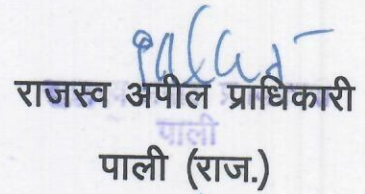 राजस्व अपील प्राधिकारी
पाली
पाली (राज.)